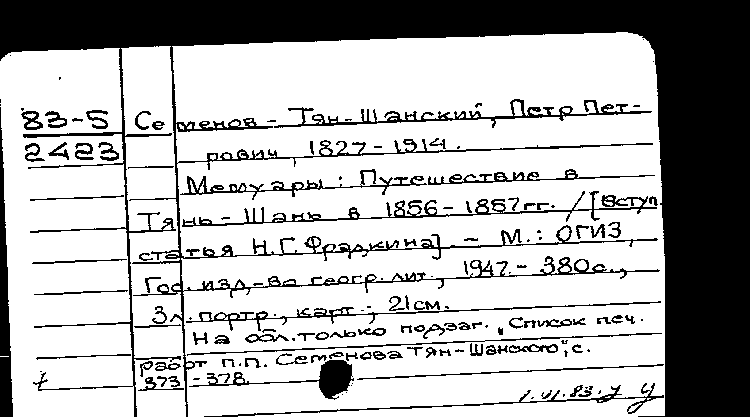 83-5 Семенов-Тян-Шанский, Петр Пет-
2423 рович, 1827-1914.
Мемуары: Путешествие в
Тянь-Шань в 1856-1857гг. / [Вступ.
статья Н.Г.Фрадкина]. - М.: ОГИЗ,
Гос. изд-во геогр. лит., 1947. - 380с.,
3л. портр., карт.; 21см.
На обл. только подзаг. „Список печ.
работ П.П. Семенова Тян-Шанского", с.
373-378.